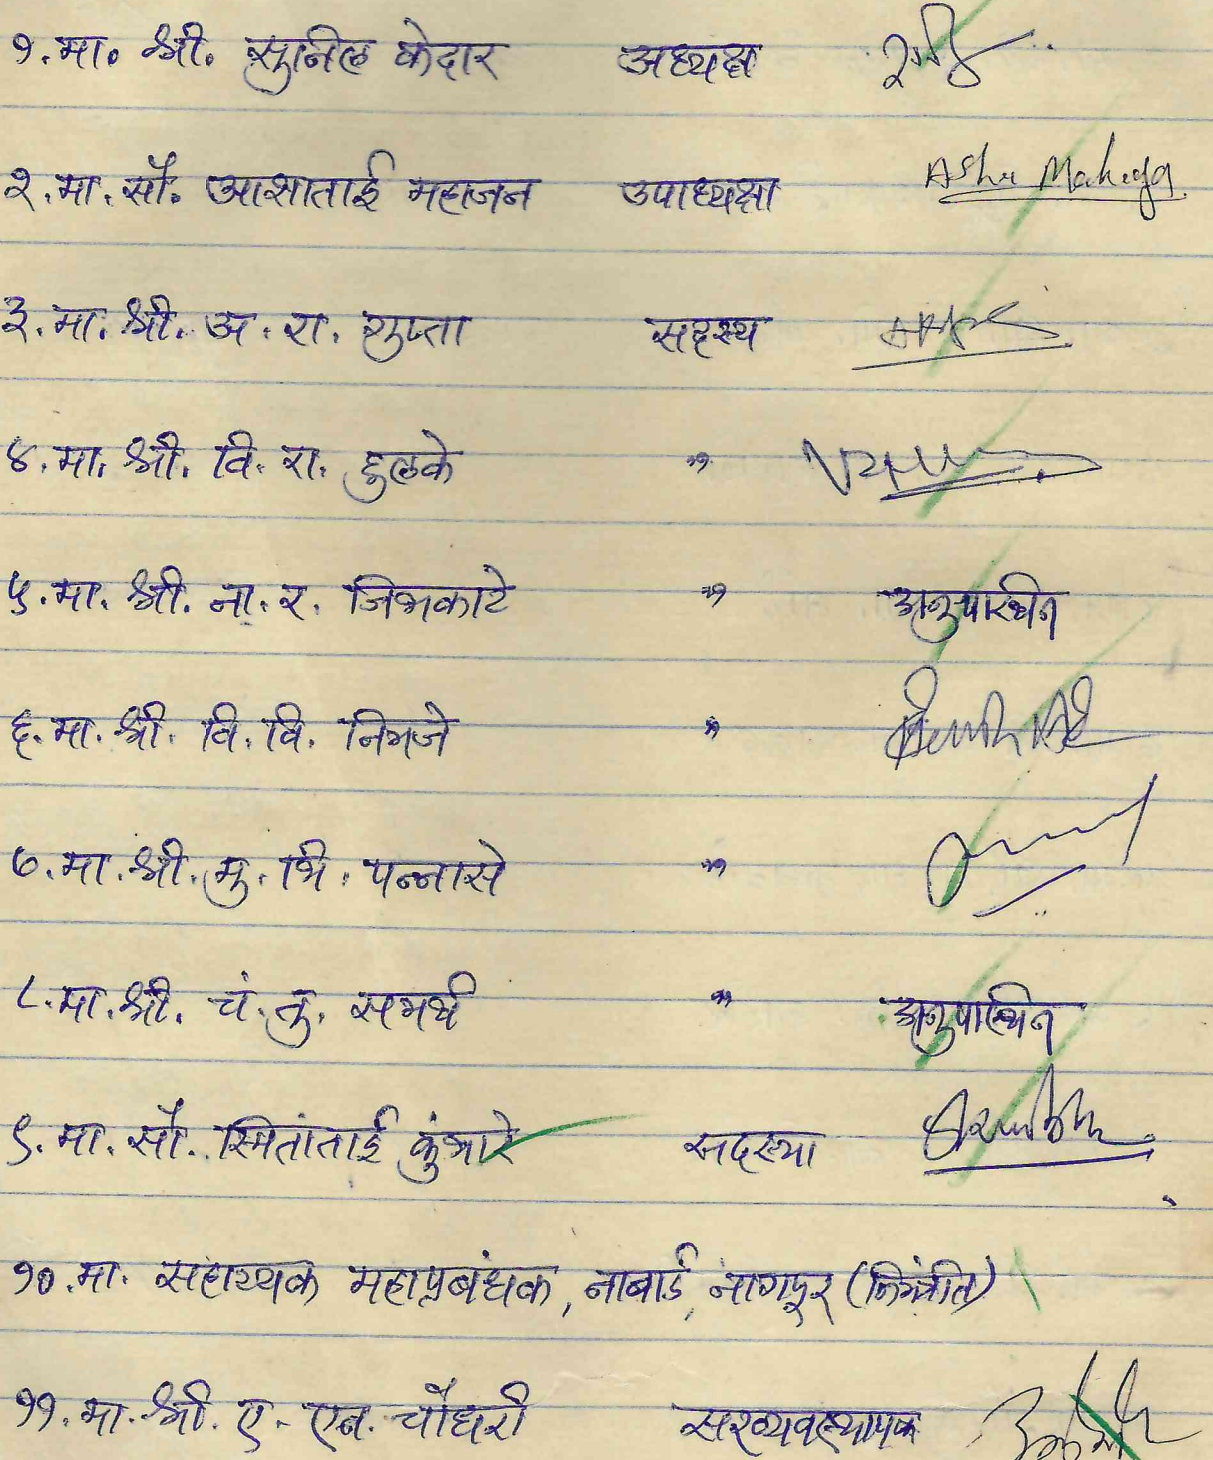 १. मा. श्री. सुनील केदार अध्यक्ष
२. मा. सौ. आशाताई महाजन उपाध्यक्षा Asha Mahajan
३. मा. श्री. अ. रा. गुप्ता सदस्य
४. मा. श्री. वि. रा. हुलके "
५. मा. श्री. ना. र. जिभकाटे " अनुपस्थित
६. मा. श्री. वि. वि. निमजे "
७. मा. श्री. मु. भि. पन्नासे "
८. मा. श्री. चं. तु. समर्थ " अनुपस्थित
९. मा. सौ. स्मिताताई कुंभारे सदस्या
१०. मा. सहाय्यक महाप्रबंधक, नाबार्ड, नागपूर (निमंत्रीत)
११. मा. श्री. ए. एन. चौधरी सरव्यवस्थापक